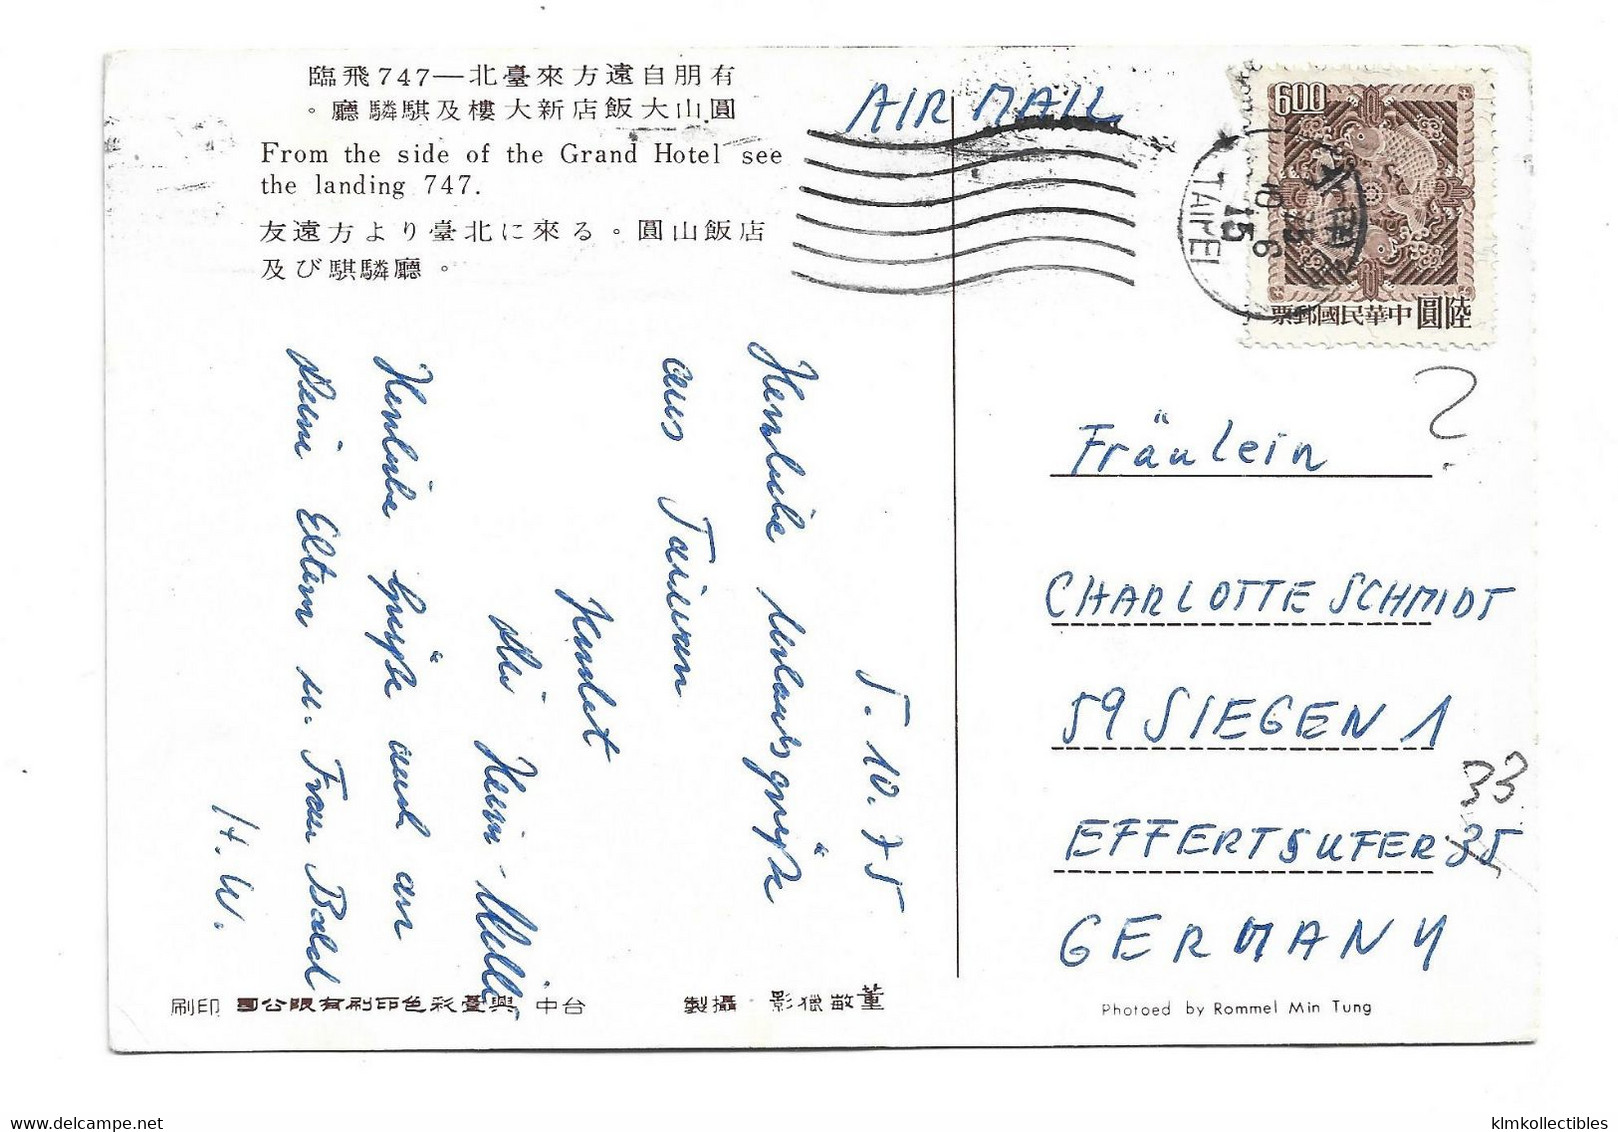 有朋自遠方來臺北—747飛臨
圓山大飯店新大樓及騏驎廳。
From the side of the Grand Hotel see
the landing 747.
友遠方より臺北に來る。圓山飯店
及び騏驎廳。
AIR MAIL
600
TAIPEI
陸圓 中華民國郵票
5. 10. 75
Herzliche Urlaubsgrüße
aus Taiwan
sendet
Herzliche Grüße auch an
Deine Eltern u. Frau
H. W.
?
Fräulein
CHARLOTTE SCHMIDT
59 SIEGEN 1
33
EFFERTSUFER 35
GERMANY
董敏獵影・攝製
台中 興臺彩色印刷有限公司 印刷
Photoed by Rommel Min Tung
klmkollectibles